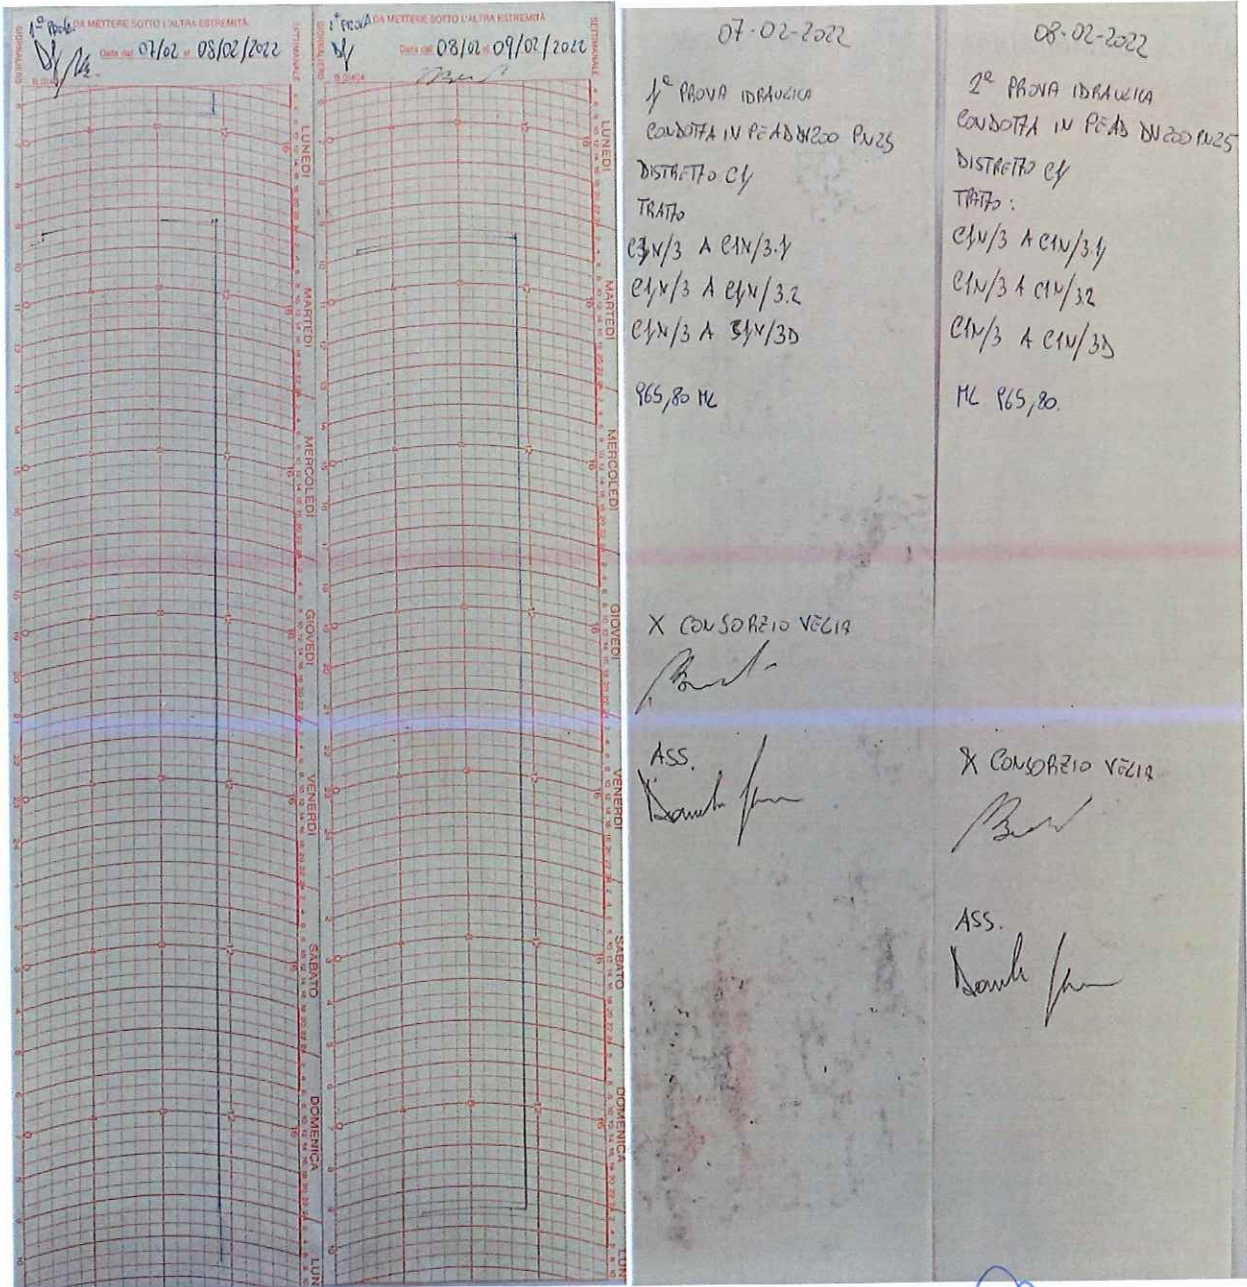 1ª PROVA DA METTERE SOTTO L'ALTRA ESTREMITÀ
GIORNALIERO
SETTIMANALE
Data dal 07/02 al 08/02/2022
LUNEDI
MARTEDI
MERCOLEDI
GIOVEDI
VENERDI
SABATO
DOMENICA
LUN
2ª PROVA DA METTERE SOTTO L'ALTRA ESTREMITÀ
GIORNALIERO
SETTIMANALE
Data dal 08/02 al 09/02/2022
LUNEDI
MARTEDI
MERCOLEDI
GIOVEDI
VENERDI
SABATO
DOMENICA
LUN
07-02-2022
1ª PROVA IDRAULICA
CONDOTTA IN PEAD DN200 PN25
DISTRETTO C1
TRATTO
C1N/3 A C1N/3.1
C1N/3 A C1N/3.2
C1N/3 A C1N/3D
965,80 ML
X CONSORZIO VELIA
ASS.
08-02-2022
2ª PROVA IDRAULICA
CONDOTTA IN PEAD DN200 PN25
DISTRETTO C1
TRATTO:
C1N/3 A C1N/3.1
C1N/3 A C1N/32
C1N/3 A C1N/3D
ML 965,80.
X CONSORZIO VELIA
ASS.